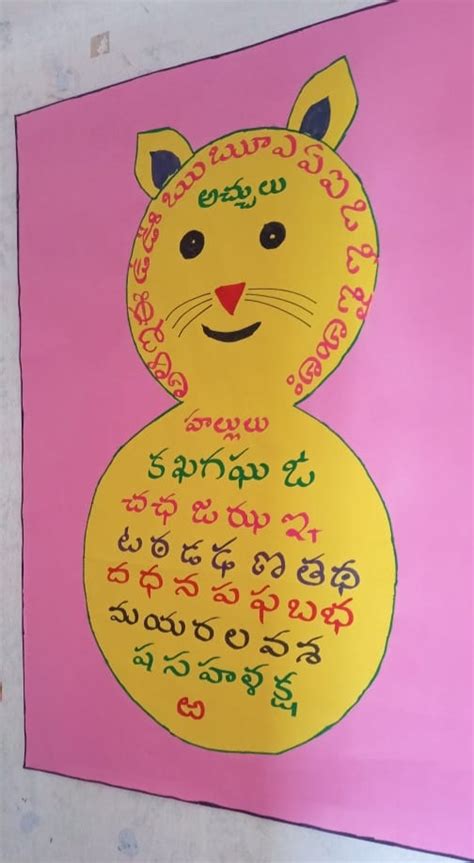 అ ఆ ఇ ఈ ఉ ఊ ఋ ౠ ఎ ఏ ఐ ఒ ఓ ఔ అం అః
అచ్చులు
హల్లులు
క ఖ గ ఘ ఙ
చ ఛ జ ఝ ఞ
ట ఠ డ ఢ ణ త థ
ద ధ న ప ఫ బ భ
మ య ర ల వ శ
ష స హ ళ క్ష
ఱ